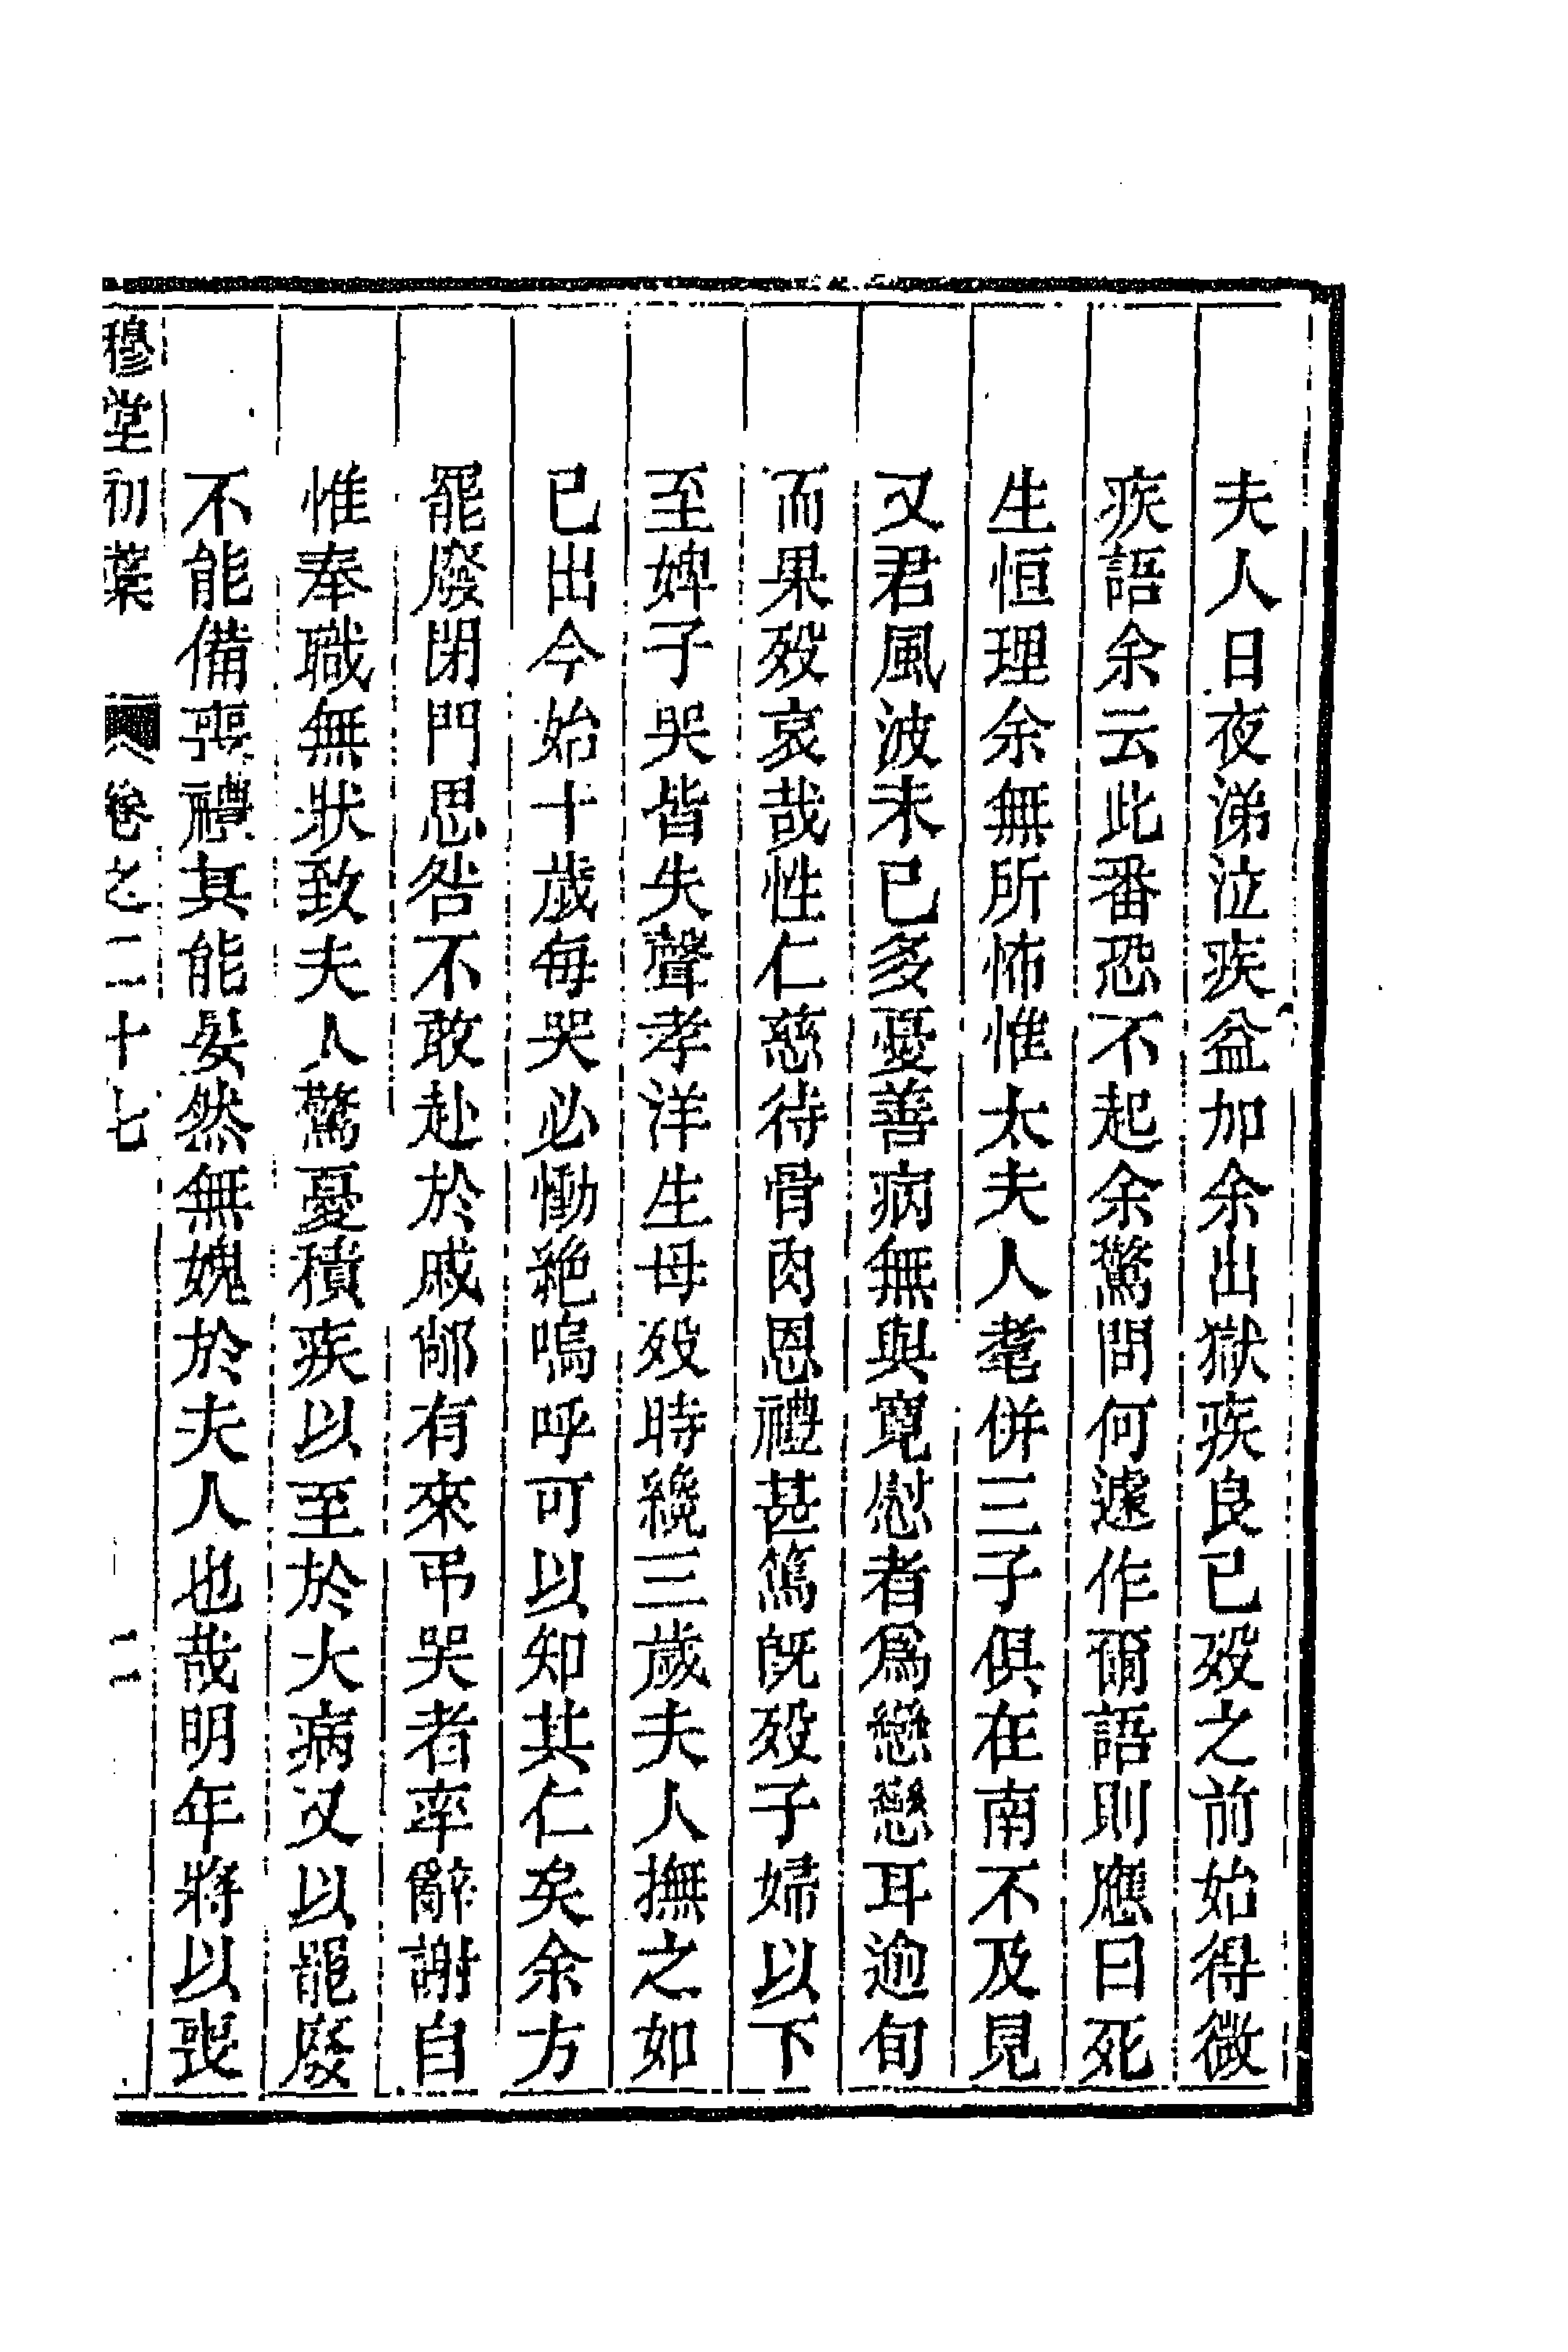 夫人日夜涕泣疾益加余出獄疾良已歿之前始得微
疾語余云此番恐不起余驚問何遽作爾語則應曰死
生恒理余無所怖惟太夫人耄併三子俱在南不及見
又君風波未已多憂善病無與寬慰者爲戀戀耳逾旬
而果歿哀哉性仁慈待骨肉恩禮甚篤旣歿子婦以下
至婢子哭皆失聲孝洋生母歿時纔三歲夫人撫之如
已出今始十歲每哭必慟絶嗚呼可以知其仁矣余方
罷廢閉門思咎不敢赴於戚鄰有來弔哭者率辭謝自
惟奉職無狀致夫人驚憂積疾以至於大病又以罷廢
不能備喪禮其能晏然無媿於夫人也哉明年將以喪
穆堂初藁　卷之二十七　二